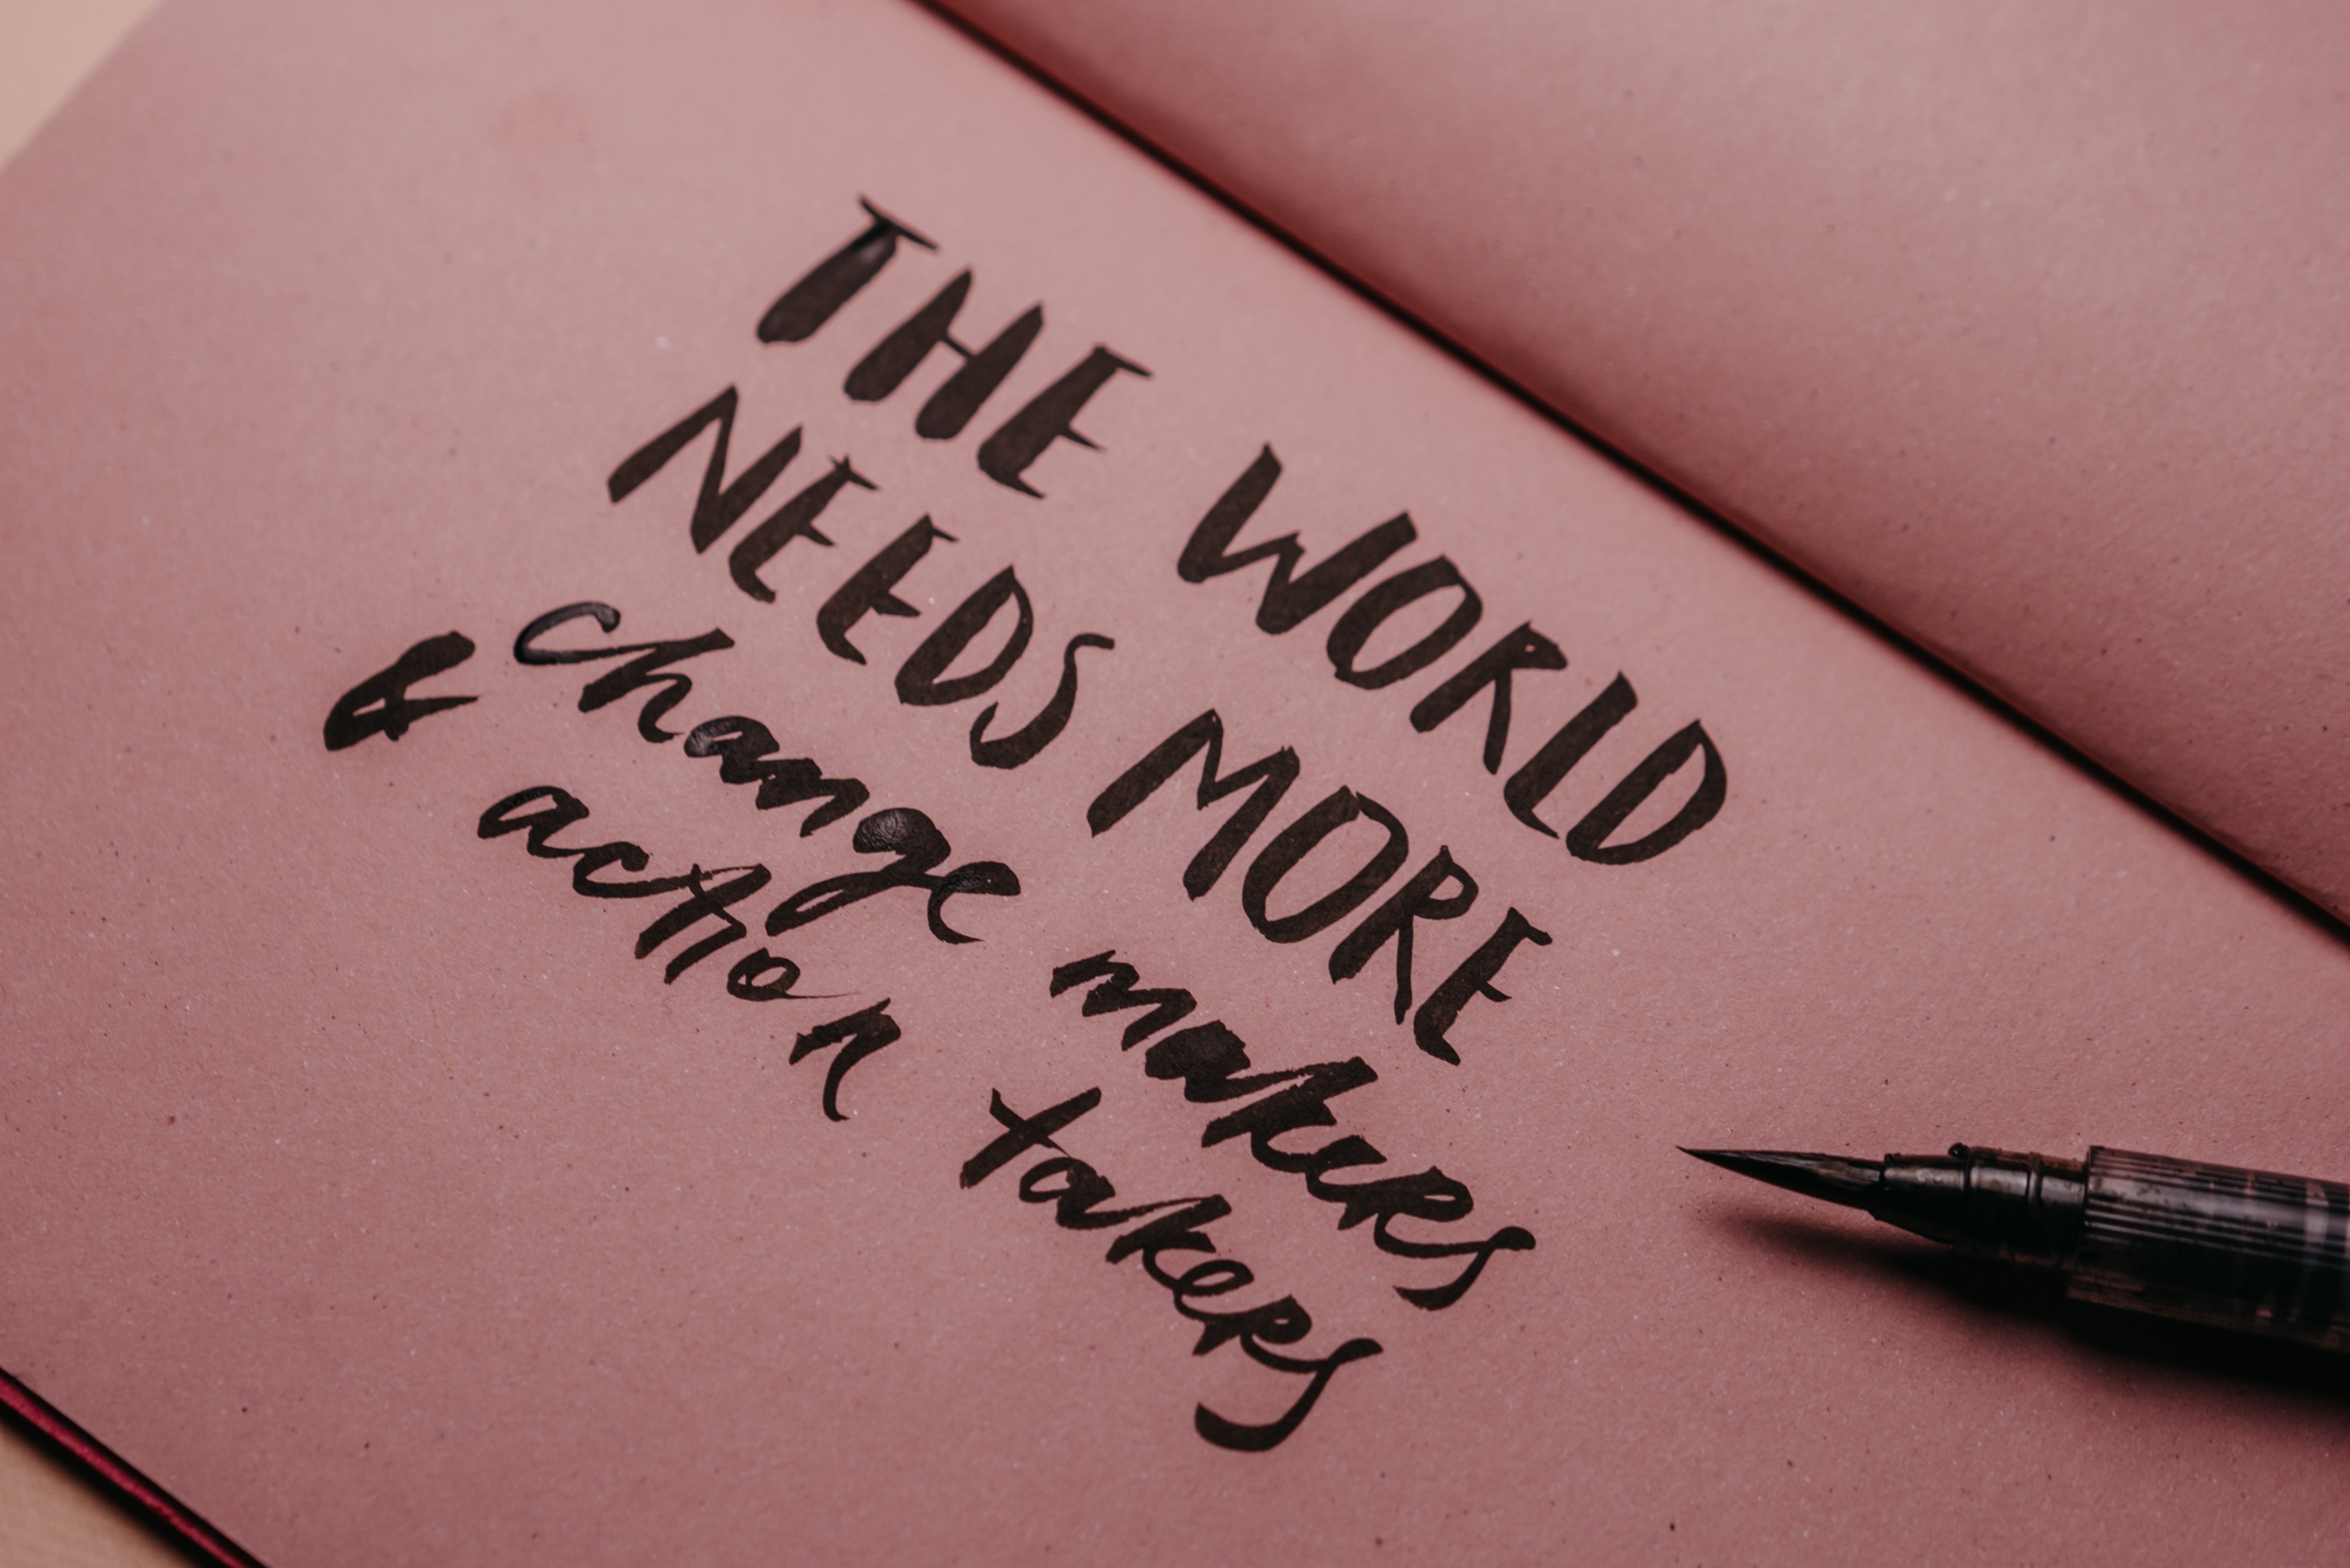 THE WORLD
NEEDS MORE
change makers
& action takers